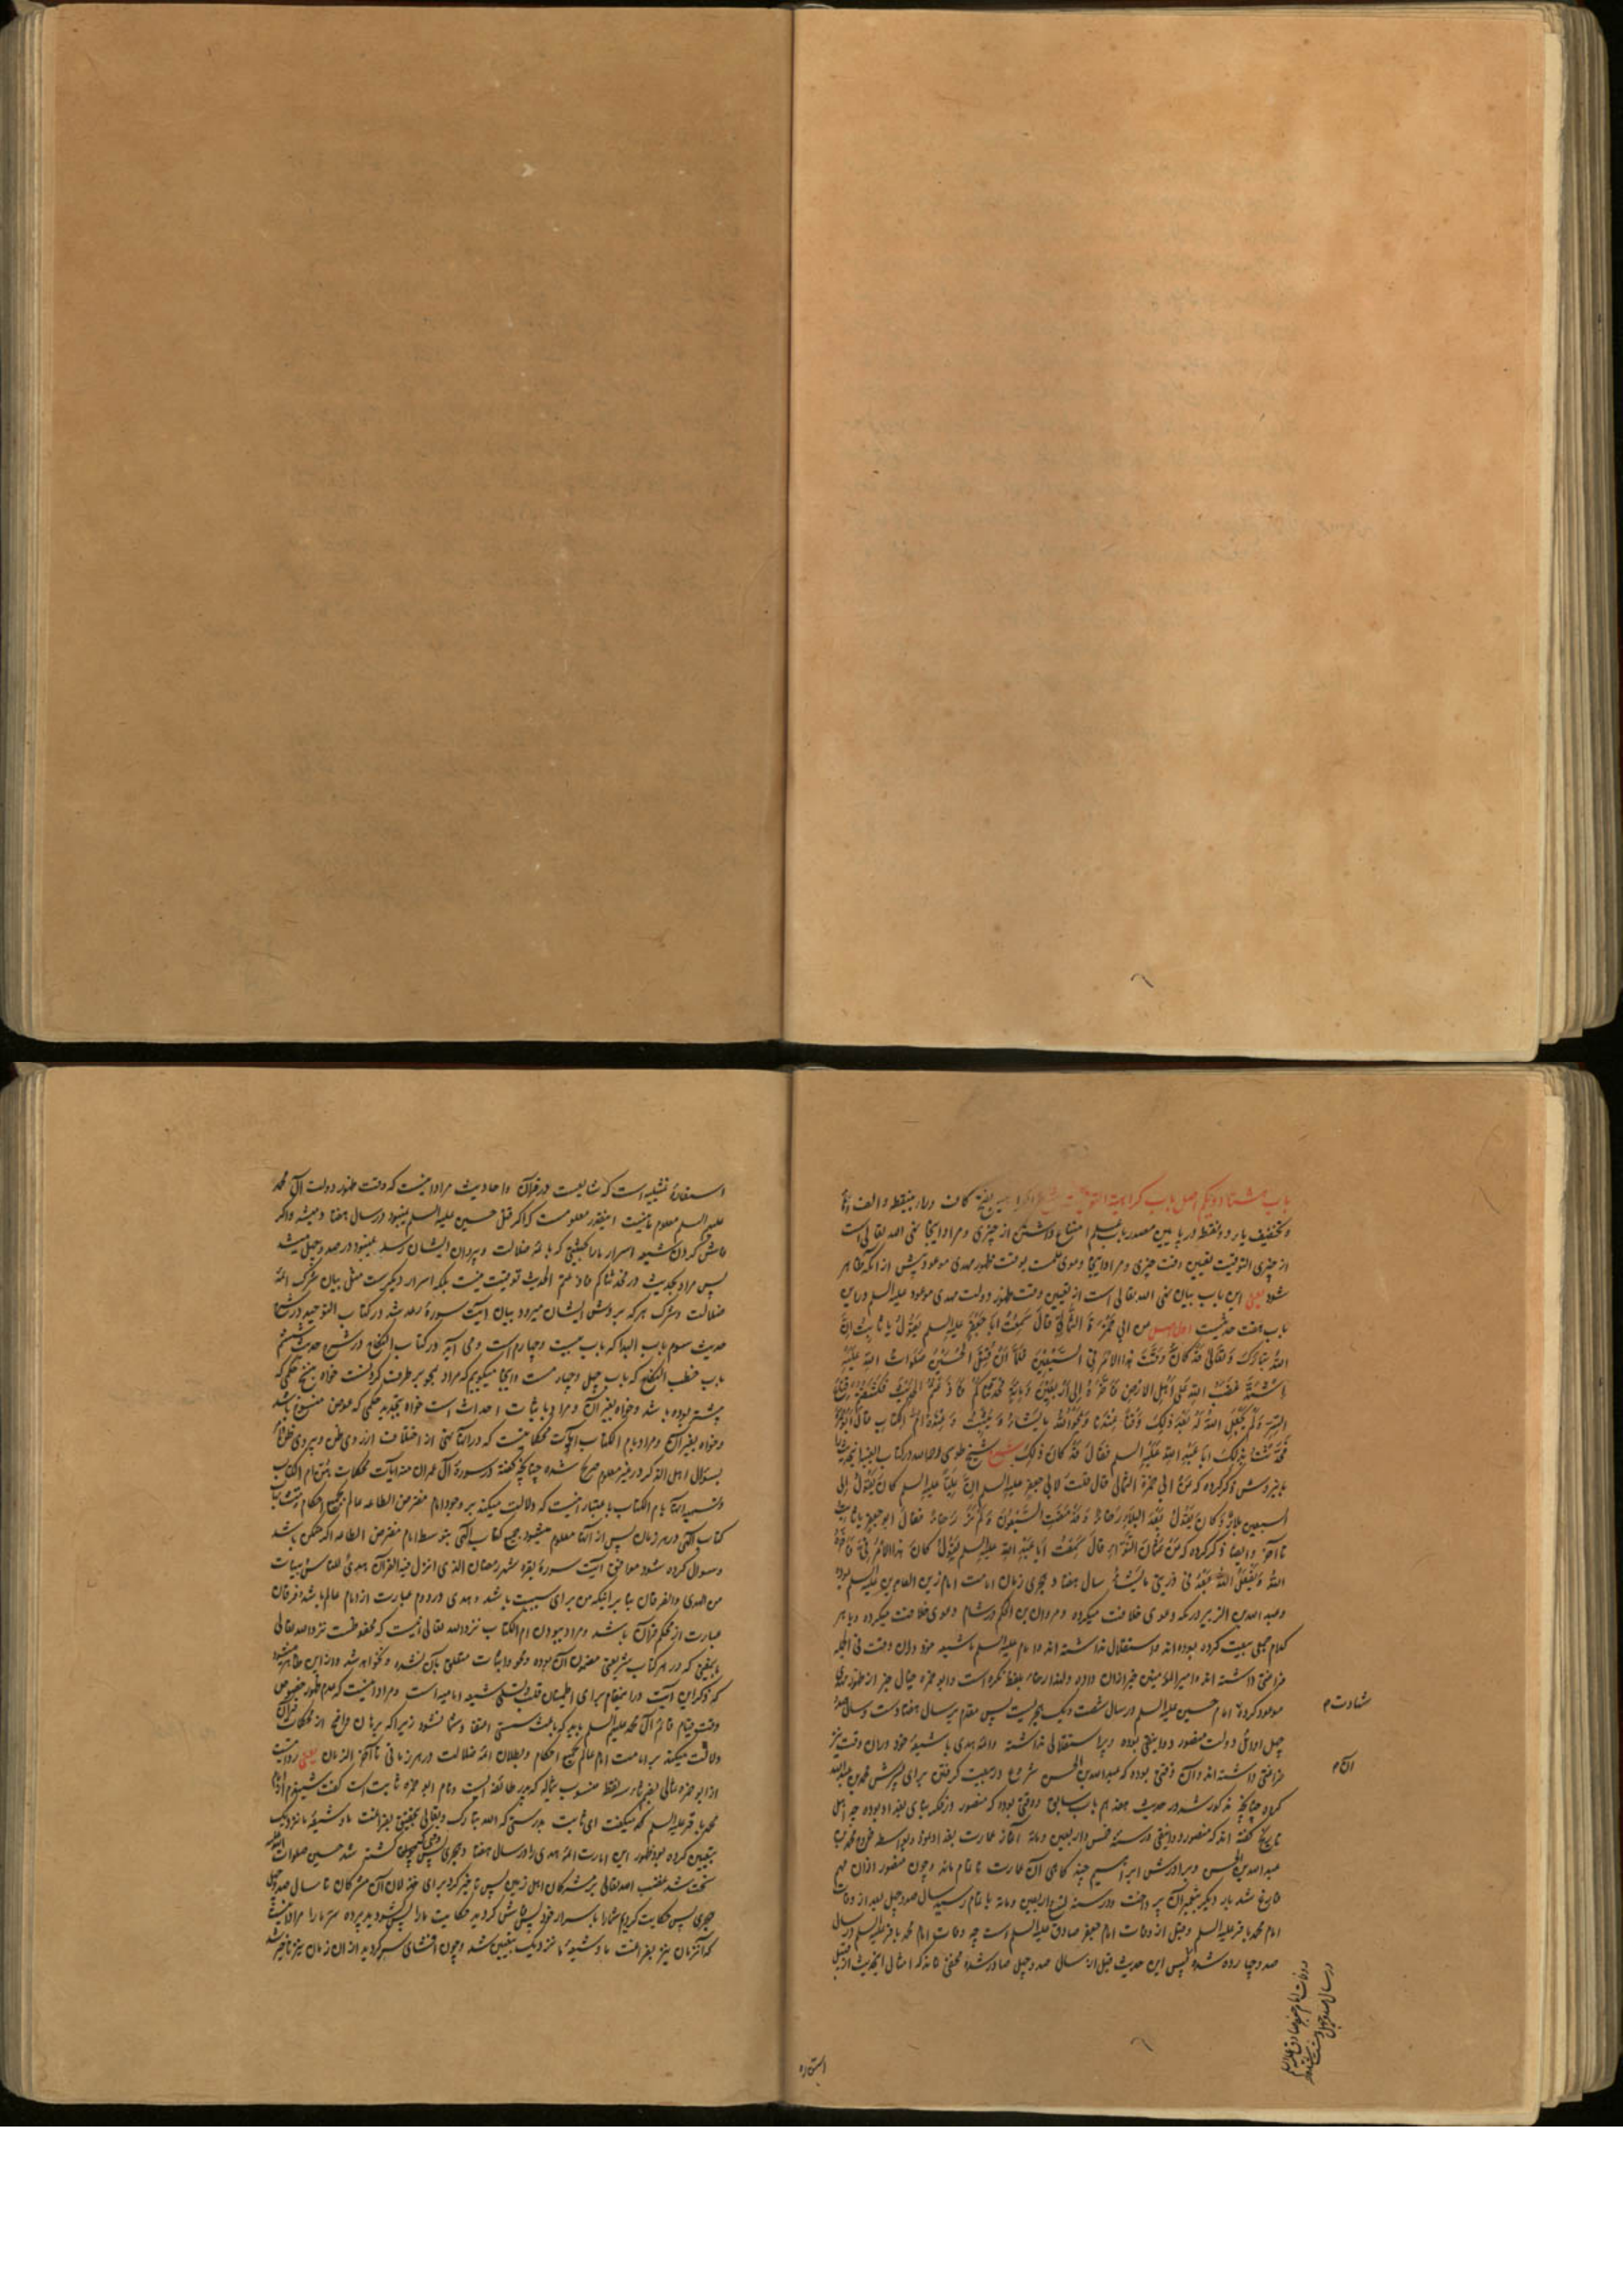 باب هشتاد ویکم اصل باب کراهیة التوقیت شرح الکراهیه بفتح کاف و راء بینقطه و الف و
و تخفیف یاء دو نقطه در پایین مصدر باب علم امتناع داشتن از چیزی و مراد اینجا نهی الله تعالی است
از چیزی التوقیت تعیین وقت چیزی و مراد اینجا دعوی علمست بوقت ظهور مهدی موعود پیش از آنکه ظاهر
شود یعنی این باب بیان نهی الله تعالی است از تعیین وقت ظهور دولت مهدی موعود علیه السلم درین
باب هفت حدیثست اول اصل عن ابی حمزة الثمالی قال سمعت ابا جعفر علیه السلم یقول یا ثابت ان
الله تبارک و تعالی قد کان وقت هذا الامر فی السبعین فلما ان قتل الحسین صلوات الله علیه
اشتد غضب الله علی اهل الارض فاخره الی اربعین و مایة فحدثناکم فاذعتم الحدیث فکشفتم قناع
الستر و لم یجعل الله له بعد ذلک وقتا عندنا و یمحو الله ما یشاء و یثبت و عنده ام الکتاب قال ابو حمزة
فحدثت بذلک ابا عبد الله علیه السلم فقال قد کان ذلک شرح شیخ طوسی رحمه الله در کتاب الغیبة
باین روش ذکر کرده که عن ابی حمزة الثمالی قال قلت لابی جعفر علیه السلم ان علیا علیه السلم کان یقول الی
السبعین بلاء و کان یقول بعد البلاء رخاء و قد مضت السبعون و لم نر رخاء فقال ابو جعفر یا ثابت
تا آخر و ایضا ذکر کرده که عن عثمان النوا قال سمعت ابا عبد الله علیه السلم یقول کان هذا الامر فیّ فاخره
الله و یفعل الله بعد فی ذریتی ما یشاء سال هفتاد هجری زمان امامت امام زین العابدین علیه السلم بوده
و عبد الله بن الزبیر در مکه دعوی خلافت میکرده و مروان بن الحکم در شام دعوی خلافت میکرده و با هر
کدام جمعی بیعت کرده بوده اند و استقلال نداشته اند و امام علیه السلم با شیعه خود دران وقت فی الجمله
فراغتی داشته اند و امیر المؤمنین خبر ازان داده و لهذا رخاء بلفظ نکره است و ابو حمزه خیال خبر از ظهور مهدی
موعود کرده امام حسین علیه السلم در سال شصت ویک هجریست پس مقدم بر سال هفتادست و سال صد و
شهادت م
چهل اوائل دولت منصور دوانیقی بوده و پر استقلالی نداشته و ائمه هدی با شیعه خود دران وقت نیز
فراغتی داشته اند و آن وقتی بوده که عبد الله بن الحسن شروع در بیعت گرفتن برای پسرش محمد بن عبد الله
آن م
کرده چنانچه مذکور شد در حدیث هفدهم باب سابق و وقتی بوده که منصور در فکر بنای بغداد بوده چه اهل
تاریخ گفته اند که منصور دوانیقی در سنه خمس و اربعین و مایه آغاز عمارت بغداد نمود و بواسطه خروج محمد بن
عبد الله بن الحسن و برادرش ابراهیم چند گاهی آن عمارت ناتمام ماند و چون منصور ازان مهم
فارغ شد بار دیگر بتعمیر آن پرداخت و در سنه تسع و اربعین و مایة باتمام رسید سال صد و چهل بعد از وفات
امام محمد باقر علیه السلم و قبل از وفات امام جعفر صادق علیه السلم است چه وفات امام محمد باقر علیه السلم در سال
صد و چهارده شده پس این حدیث قبل از سال صد و چهل صادر شده مخفی نماند که امثال اینحدیث از قبیل
و وفات امام جعفر صادق علیه السلم
در سال صد و چهل و هشت
استعاره
استعارهٔ تمثیلیه است که شایعست در قرآن و احادیث مراد اینست که وقت ظهور دولت آل محمد
علیهم السلم معلوم ما نیست اینقدر معلومست که اگر قتل حسین علیه السلم نمیبود در سال هفتاد میشد و اگر
فاش کردن شیعه اسرار ما را بحیثیتی که بائمه ضلالت و پیروان ایشان رسد نمیبود در صد و چهل میشد
پس مراد بحدیث در فحدثناکم فاذعتم الحدیث توقیت نیست بلکه اسرار دیگرست مثل بیان شرک ائمه
ضلالت و شرک هرکه بر روش ایشان میرود بیان آیت سورهٔ رعد شد در کتاب التوحید در شرح
حدیث سوم باب البدا که باب بیست و چهارم است و می آید در کتاب النکاح در شرح حدیث ششم
باب خطب النکاح که باب چهل و چهارمست و اینجا میگوییم که مراد بمحو برطرف کردنست خواه بنسخ حکمی که
پیشتر بوده باشد و خواه بغیر آن و مراد باثبات احداث است خواه بتجدید حکمی که عوض منسوخ باشد
و خواه بغیر آن و مراد بام الکتاب آیات محکماتست که در آنها نهی از اختلاف از روی ظن و پیروی ظن و امر
بسؤال اهل الذکر در غیر معلوم صریح شده چنانچه گفته در سورهٔ آل عمران منه آیات محکمات هن ام الکتاب
و تسمیه آنها بام الکتاب باعتبار اینست که دلالت میکند بر وجود امام مفترض الطاعه عالم بجمیع احکام و متشابهات
کتاب الهی در هر زمان پس از آنها معلوم میشود جمیع کتاب الهی بتوسط امام مفترض الطاعه اگر ممکن باشد
و سوال کرده شود موافق آیت سورهٔ بقره شهر رمضان الذی انزل فیه القرآن هدی للناس و بینات
من الهدی و الفرقان بنا بر اینکه من برای سببیت باشد و هدی در دوم عبارت از امام عالم باشد و فرقان
عبارت از محکم قرآن باشد و مراد ببودن ام الکتاب نزد الله تعالی اینست که محفوظست نزد الله تعالی
بمعنی که در هر کتاب شریعتی مضمون آن بوده و محو و اثبات متعلق بآن نشده و نخواهد شد و ازین ظاهر میشود
که ذکر این آیت درین مقام برای اطمینان قلب و تسلی شیعه امامیه است و مراد اینست که عدم ظهور خصوص
وقت قیام قائم آل محمد علیهم السلم باید که باعث سستی اعتقاد شما نشود زیرا که برهان واضح از محکمات قرآن
دلالت میکند بر امامت امام عالم بجمیع احکام و بطلان ائمه ضلالت در هر زمانی تا آخر الزمان یعنی روایتست
از ابو حمزه ثمالی بضم ثاء سه نقطه منسوب بثماله که پدر طائفه ایست و نام ابو حمزه ثابت است گفت شنیدم از امام
محمد باقر علیه السلم که میگفت ای ثابت بدرستی که الله تبارک و تعالی بتحقیق بفراغت ما و شیعهٔ ما نزدیک
بتعیین کرده بود ظهور این امارت ائمه هدی را در سال هفتاد هجری پس وقتی که کشته شد حسین صلوات الله علیه
سخت شد غضب الله تعالی بر مشرکان اهل زمین پس تاخیر کرد برای خذلان آن مشرکان تا سال صد و چهل
هجری پس حکایت کردیم شما را باسرار خود پس فاش کردید حکایت ما را پس گشودید پرده ستر ما را مراد اینست
که آنزمان نیز بفراغت ما و شیعهٔ ما نزدیک بتعیین شد و چون افشای سر کردید از آن زمان نیز تاخیر شد